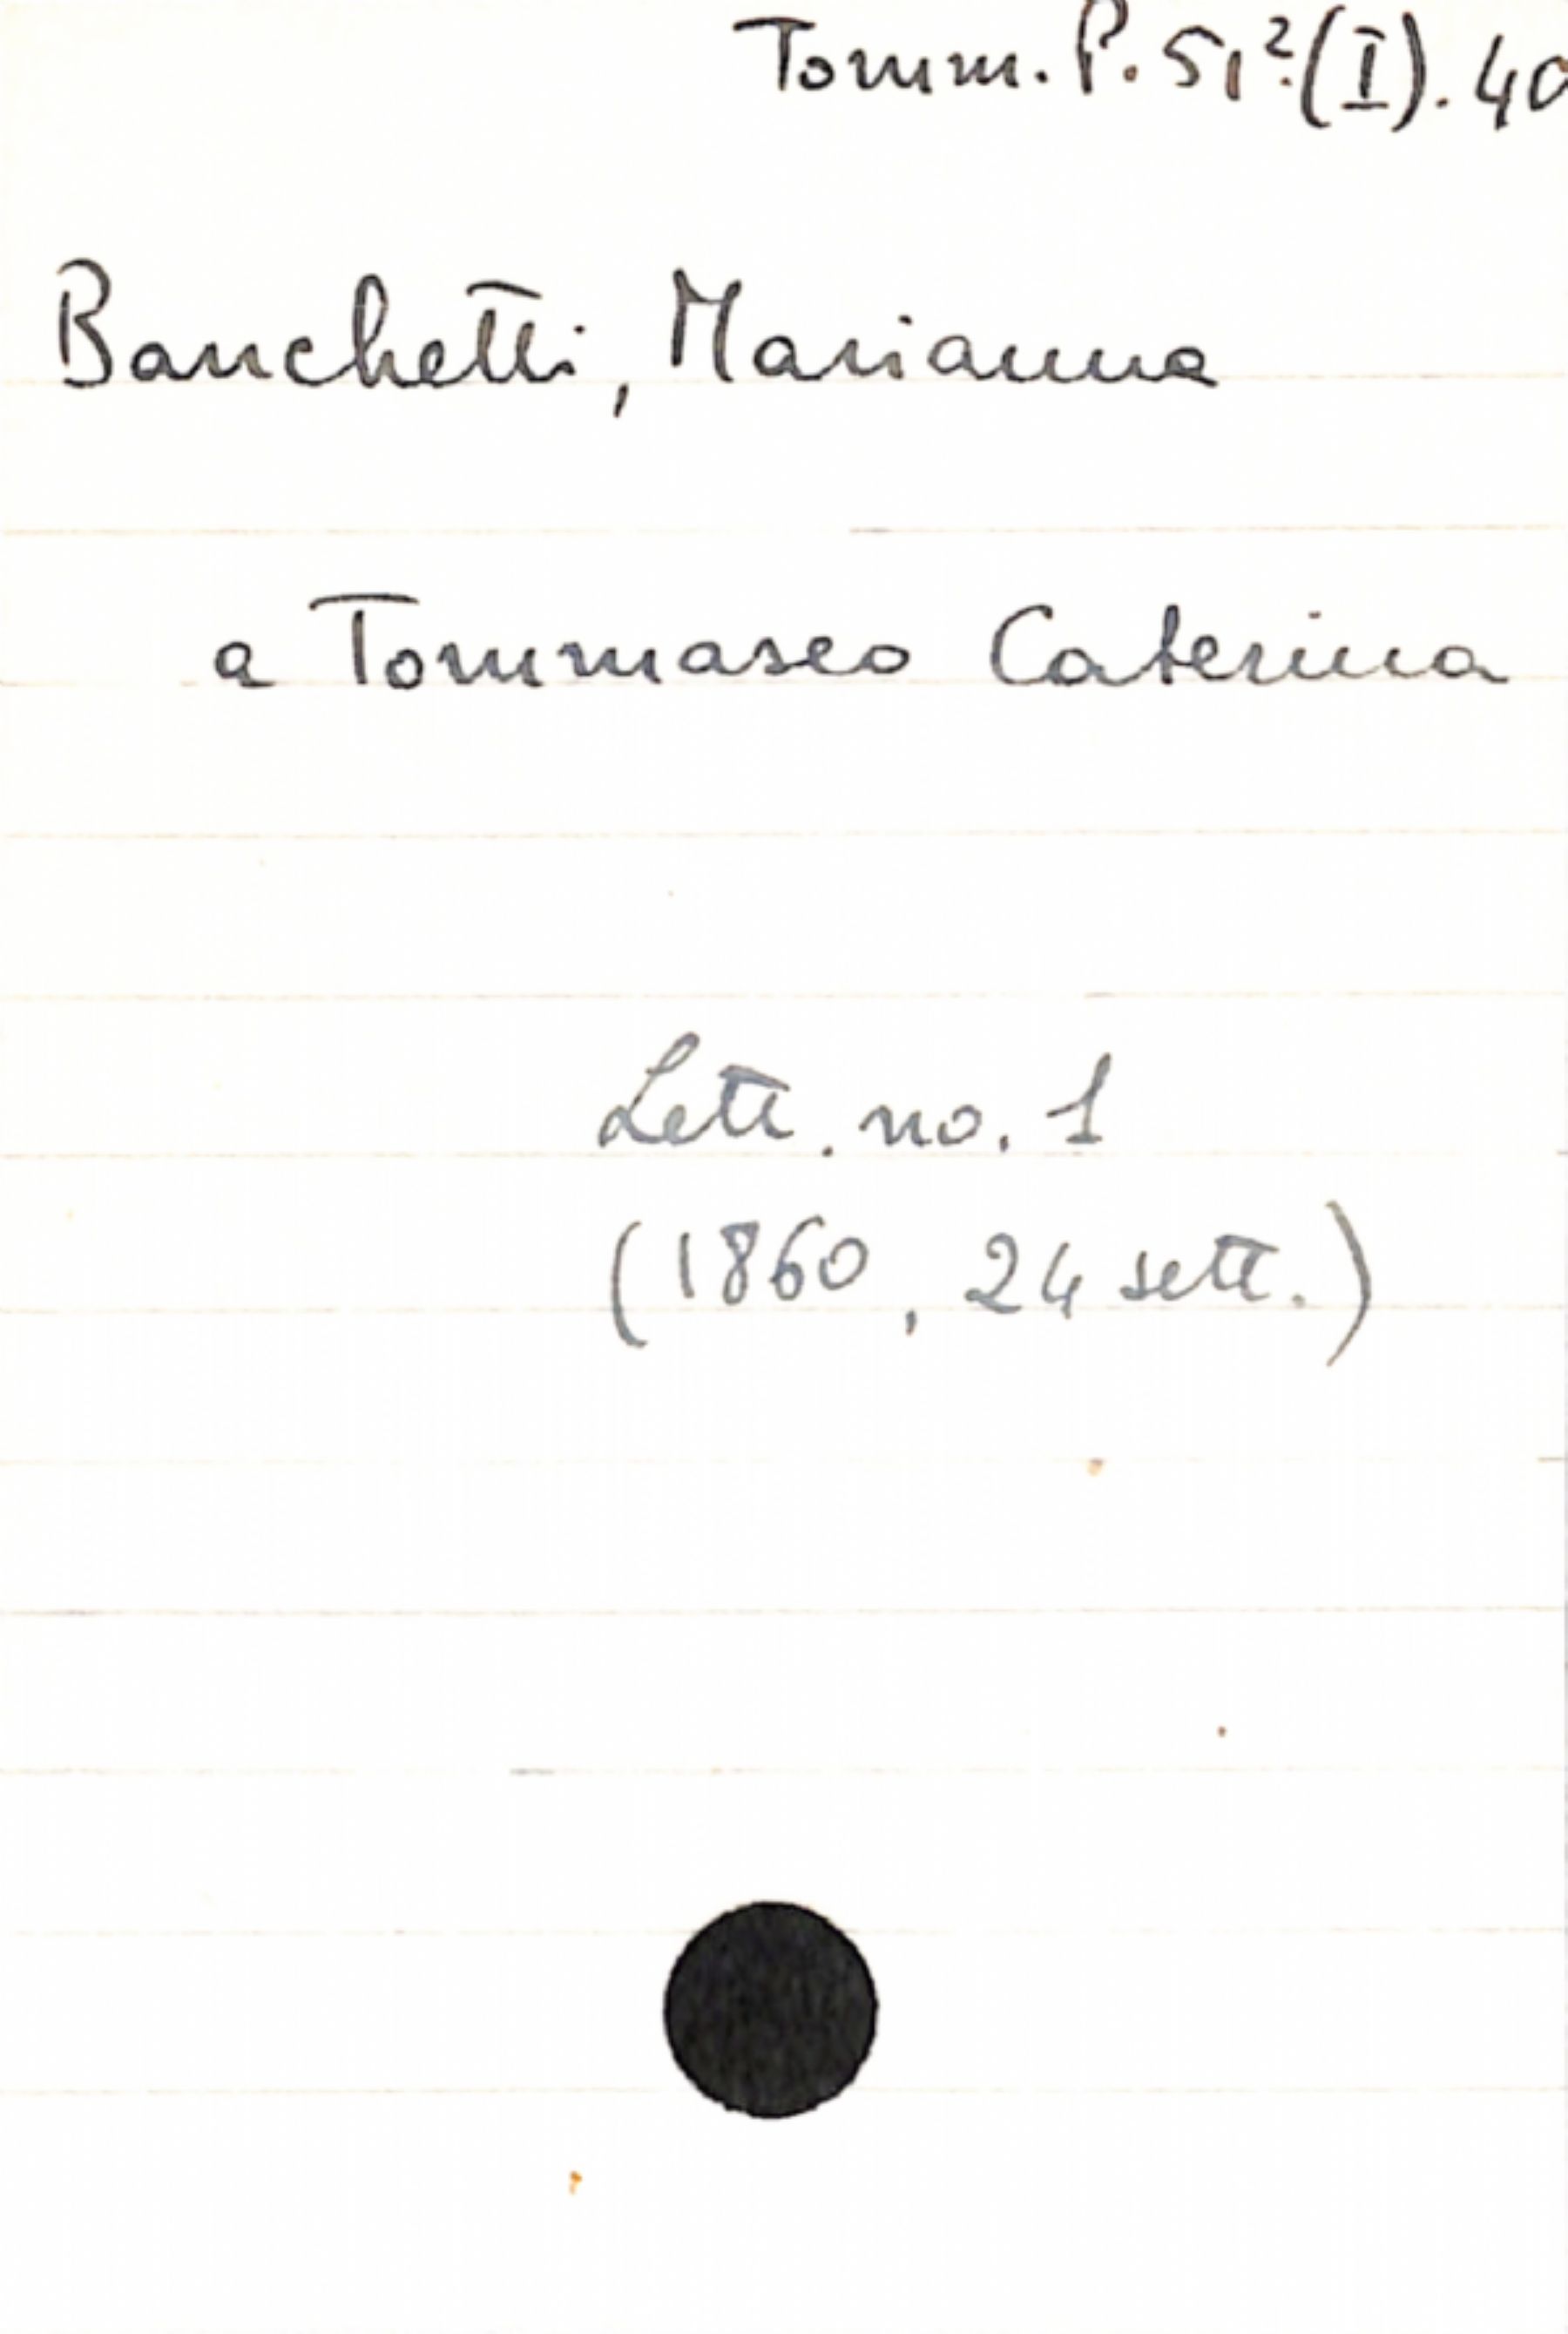 Tomm. P. 51².(I). 40
Banchetti, Marianna
a Tommaseo Caterina
Lett. no. 1
(1860, 24 sett.)